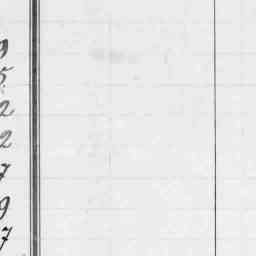 9
5
2
2
7
9
7